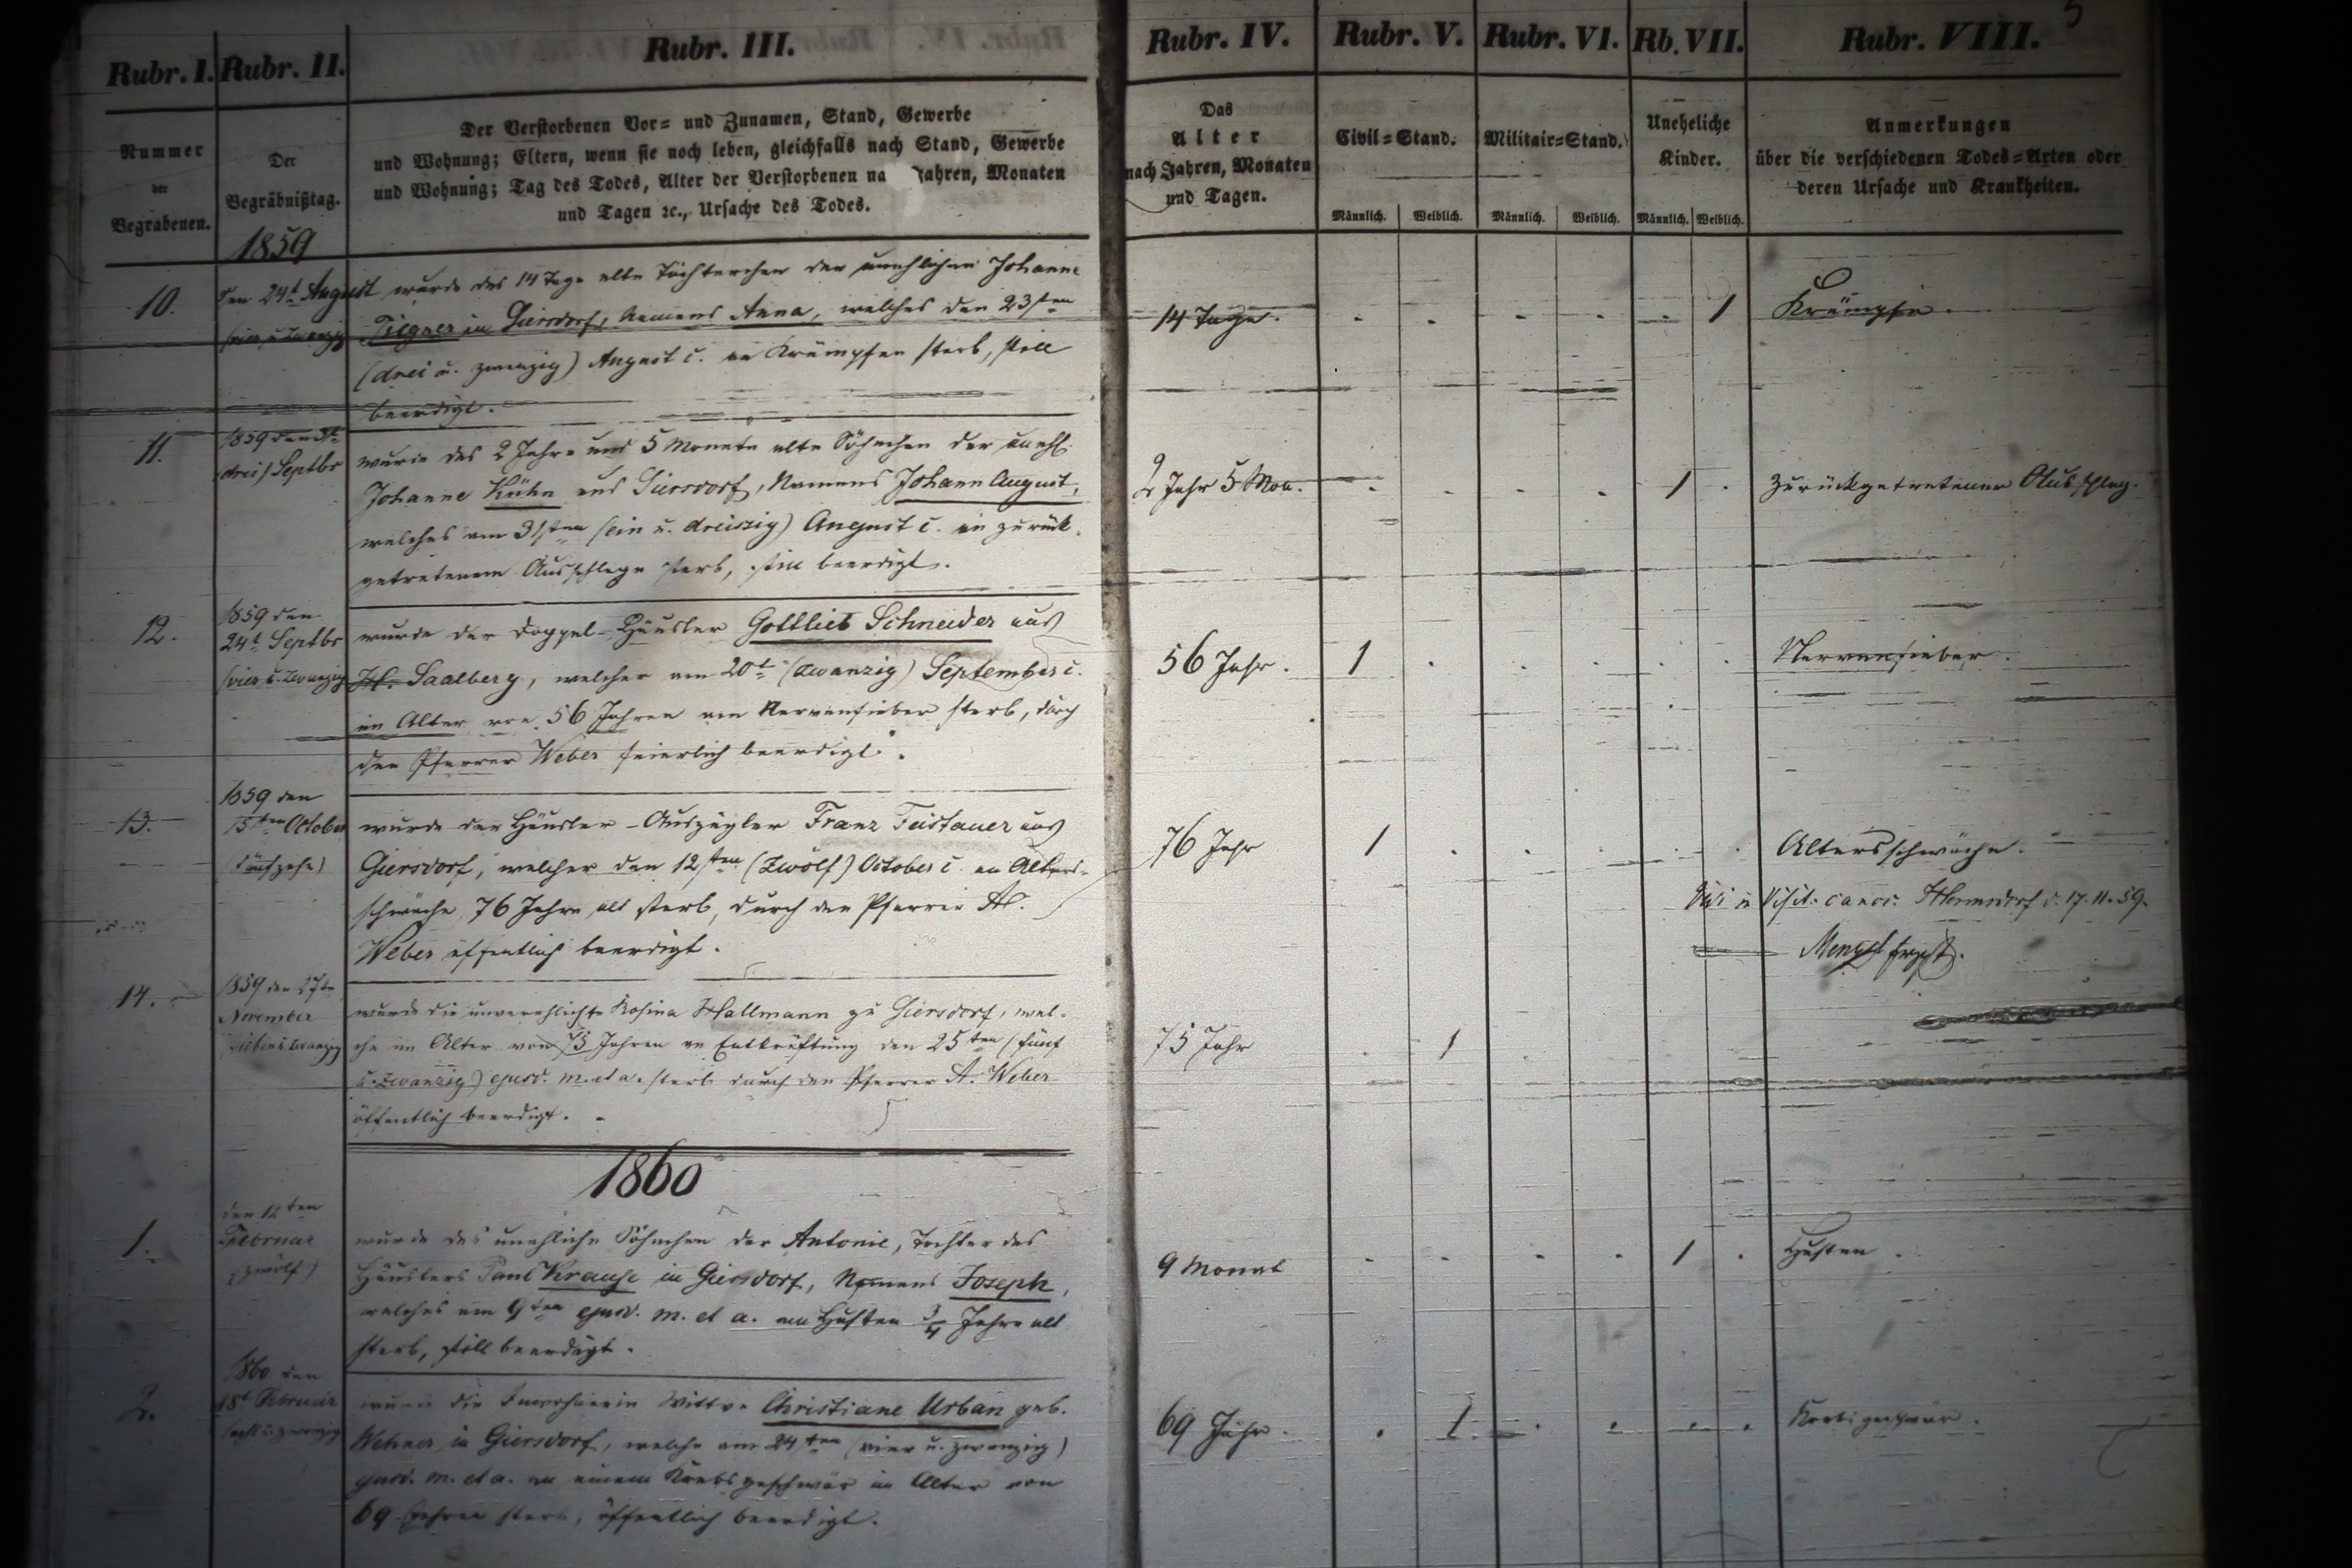 5
Rubr. I. Rubr. II. Rubr. III. Rubr. IV. Rubr. V. Rubr. VI. Rb. VII. Rubr. VIII.
Nummer
der
Begrabenen.
Der
Begräbnißtag.
Der Verstorbenen Vor= und Zunamen, Stand, Gewerbe
und Wohnung; Eltern, wenn sie noch leben, gleichfalls nach Stand, Gewerbe
und Wohnung; Tag des Todes, Alter der Verstorbenen na Jahren, Monaten
und Tagen ꝛc., Ursache des Todes.
Das
Alter
nach Jahren, Monaten
und Tagen.
Civil=Stand.
Männlich. Weiblich.
Militair=Stand.
Männlich. Weiblich.
Uneheliche
Kinder.
Männlich. Weiblich.
Anmerkungen
über die verschiedenen Todes=Arten oder
deren Ursache und Krankheiten.
1859
10.
Den 24t August
wurde das 14 Tage alte Töchterchen der unehlichen Johanne
in Giersdorf, Namens Anna, welches den 23sten
(drei u. zwanzig) August c. an Krämpfen starb, still
beerdigt.
14 Tage. 1 Krämpfe.
11.
1859 den 3t
(drei) Septbr
wurde das 2 Jahre und 5 Monate alte Söhnchen der unehl.
Johanne Kühn aus Giersdorf, Namens Johann August,
welches am 31sten (ein u. dreiszig) August c. an zurück-
getretenem Ausschlage starb, still beerdigt.
2 Jahr 5 Mon. 1 zurückgetretener Ausschlag.
12.
1859 den
24t Septbr
(vier u. zwanzig
wurde der Doppel-Häusler Gottlieb Schneider aus
Saalberg, welcher am 20t (zwanzig) September c.
im Alter von 56 Jahren am Nervenfieber starb, durch
den Pfarrer Weber feierlich beerdigt.
56 Jahr. 1 Nervenfieber.
13.
1859 den
15ten October
(fünfzehn)
wurde der Häusler-Auszügler Franz Feistauer aus
Giersdorf, welcher den 12sten (zwölf) October c. an Alters-
schwäche 76 Jahre alt starb, durch den Pfarrer A.
Weber öffentlich beerdigt.
76 Jahr 1 Altersschwäche.
Visit. canon. Hermsdorf d. 17. 11. 59.
14.
1859 den 27te
November
sieben u. zwanzig
wurde die unverehlichte Rosina Hallmann zu Giersdorf, wel-
che im Alter von 75 Jahren an Entkräftung den 25ten (fünf
u. zwanzig) ejusd. m. et a. starb durch den Pfarrer A. Weber
öffentlich beerdigt.
75 Jahr 1
1860
1.
den 12ten
Februar
(zwölf)
wurde das unehliche Söhnchen der Antonie, Tochter des
Häuslers Paul Krause in Giersdorf, Namens Joseph,
welches am 9ten ejusd. m. et a. an Husten 3/4 Jahre alt
starb, still beerdigt.
9 Monat 1 Husten.
2.
1860 den
28t Februar
(acht u. zwanzig
wurde die Inwohnerin Wittwe Christiane Urban geb.
Wehner in Giersdorf, welche am 24ten (vier u. zwanzig)
ejusd. m. et a. an einem Krebsgeschwür im Alter von
69 Jahren starb, öffentlich beerdigt.
69 Jahr. 1 Krebsgeschwür.